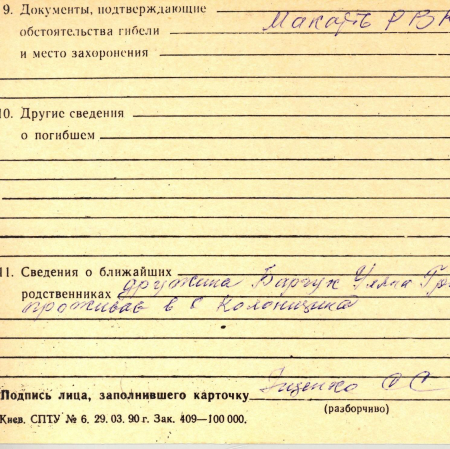 9. Документы, подтверждающие
обстоятельства гибели
и место захоронения
Макарів РВК
10. Другие сведения
о погибшем
11. Сведения о ближайших
родственниках дружина Баргук Уляна
проживає в с Колонщина
Подпись лица, заполнившего карточку Яценко О С
(разборчиво)
Киев. СПТУ № 6. 29. 03. 90 г. Зак. 409—100 000.